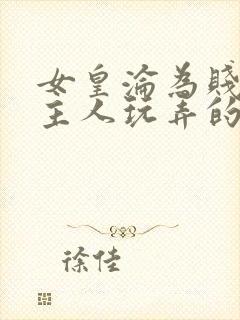 女皇淪為賤
主人玩弄的
徐佳